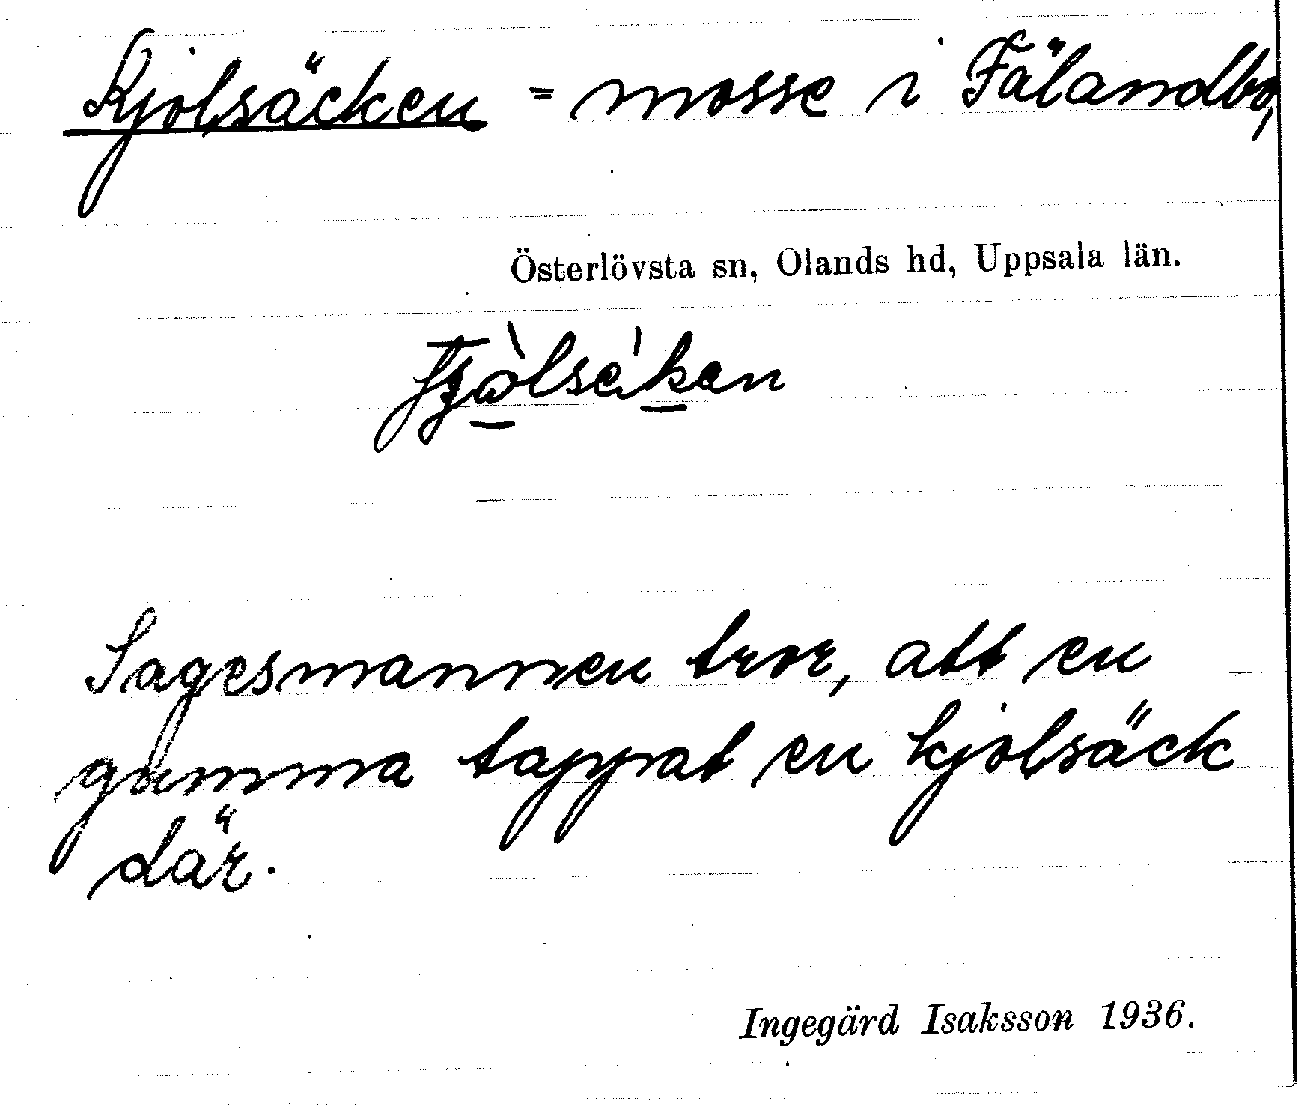 Kjolsäcken = mosse i Fälandbo,
Österlövsta sn, Olands hd, Uppsala län.
Sagesmannen tror, att en
gumma tappat en kjolsäck
där.
Ingegärd Isaksson 1936.